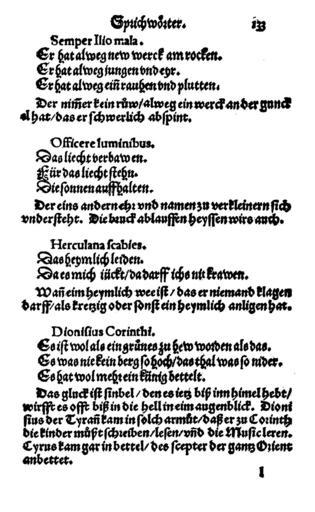 Sprichwörter. 133
Semper Ilio mala.
Er hat alweg new werck am rocken.
Er hat alweg jungen vnd eyr.
Er hat alweg eiñ rauhen vnd plutten.
Der nim̃er kein rüw/alweg ein werck an der gunck
el hat/das er schwerlich abspint.
Officere luminibus.
Das liecht verbawen.
Für das liecht stehn.
Die sonnen auffhalten.
Der eins andern ehr vnd namen zu verkleinern sich
vndersteht. Die bruck ablauffen heyssen wirs auch.
Herculana scabies.
Das heymlich leiden.
Da es mich jückt/da darff ichs nit krawen.
Wañ eim heymlich wee ist/das er niemand klagen
darff/als kretzig oder sonst ein heymlich anligen hat.
Dionisius Corinthi.
Es ist wol als ein grünes zu hew worden als das.
Es was nie kein berg so hoch/das thal was so nider.
Es hat wol mehr ein künig bettelt.
Das gluck ist sinbel/den es ietz biß inn himel hebt/
wirfft es offt biß in die hell in eim augenblick. Dioni
sius der Tyrañ kam in solch armůt/daß er zu Corinth
die kinder můst schreiben/lesen/vñd die Music leren.
Cyrus kam gar in bettel/des scepter der gantz Orient
anbettet.